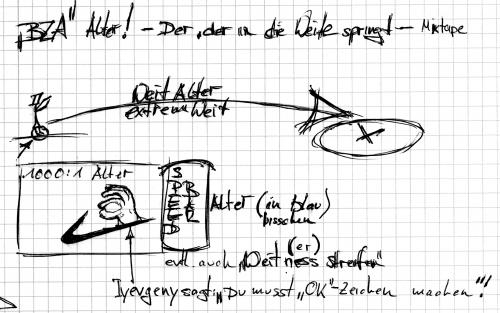 „BZA" Alter! – Der, der in die Weite springt – Mixtape
Weit Alter
extrem Weit
1000:1 Alter
SPEED
BÄR
Alter (in blau)
bisschen
(er)
evtl. auch „Weitness streifen"
Iyevgeny sagt: „Du musst „OK"-Zeichen machen"!!